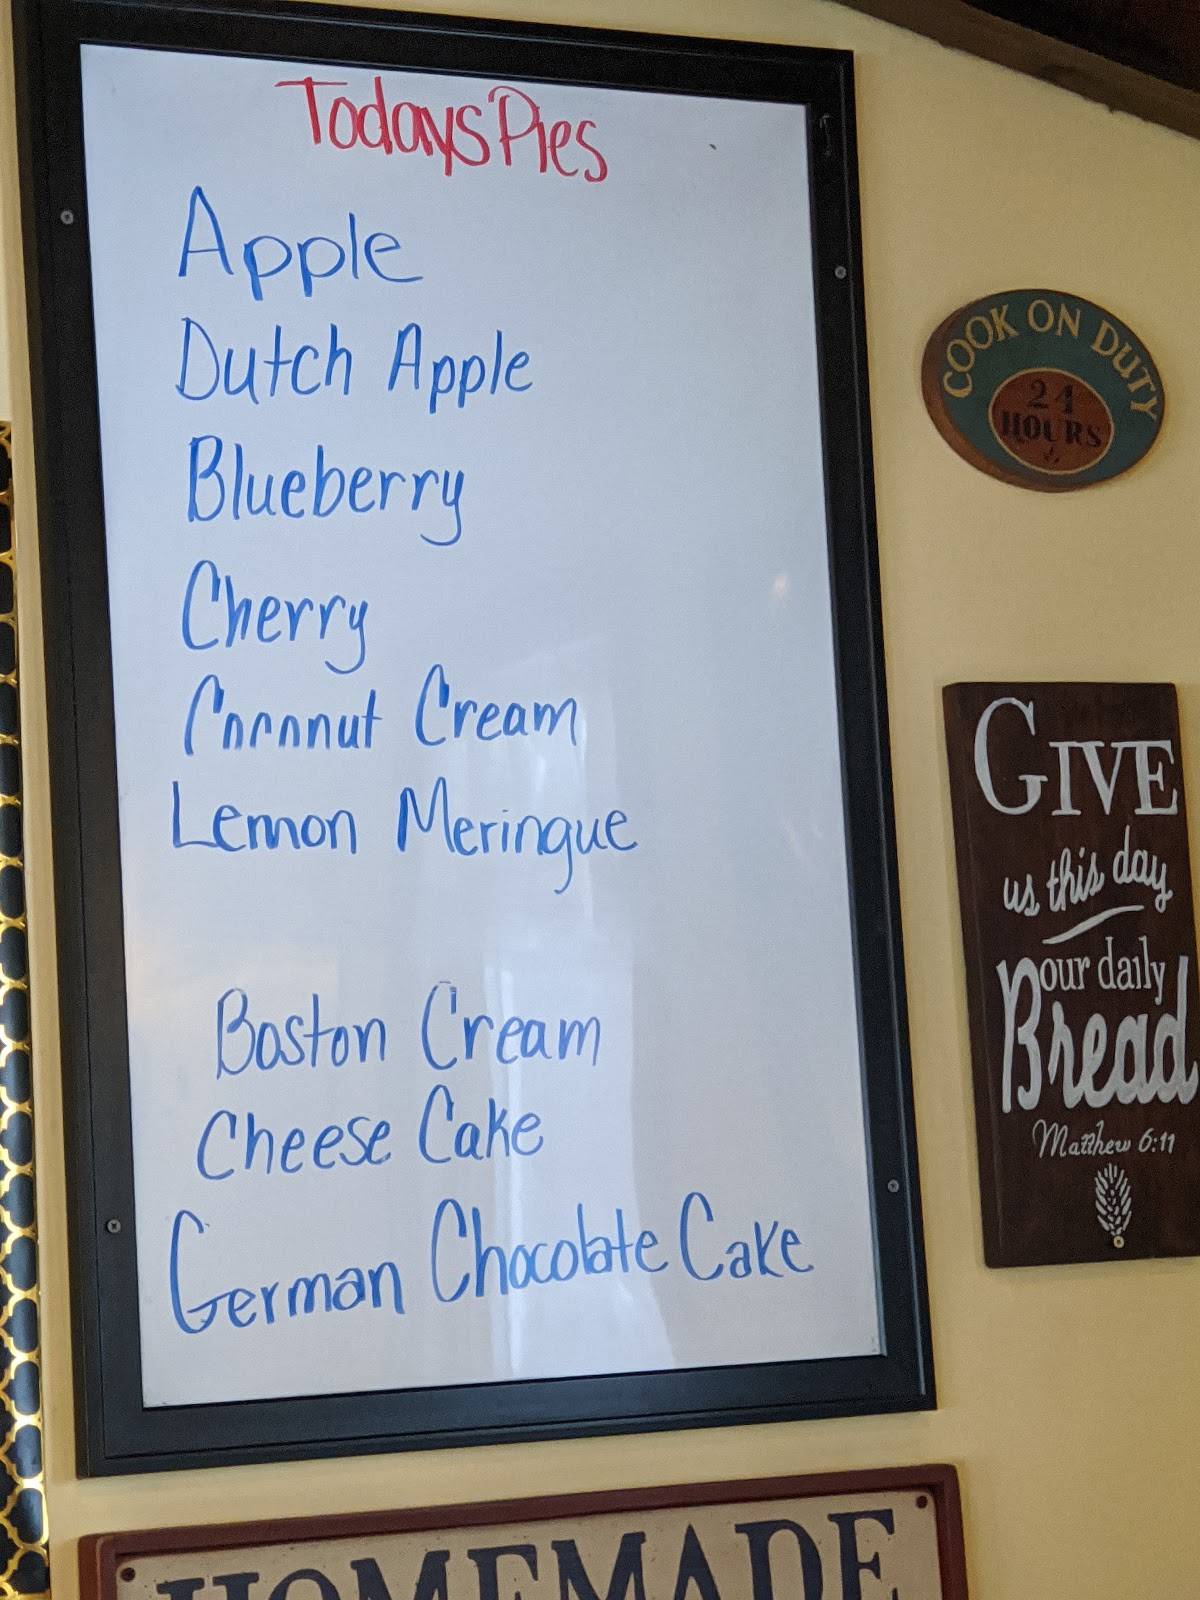 Todays' Pies
Apple
Dutch Apple
Blueberry
Cherry
Coconut Cream
Lemon Meringue
Boston Cream
Cheese Cake
German Chocolate Cake
COOK ON DUTY
24
HOURS
GIVE
us this day
our daily
Bread
Matthew 6:11
HOMEMADE